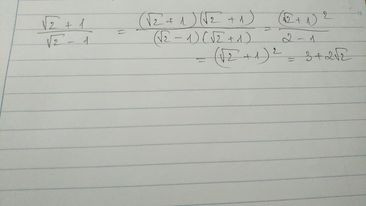 (√2 + 1)/(√2 - 1) = ((√2 + 1)(√2 + 1))/((√2 - 1)(√2 + 1)) = (√2 + 1)²/(2 - 1)
= (√2 + 1)² = 3 + 2√2